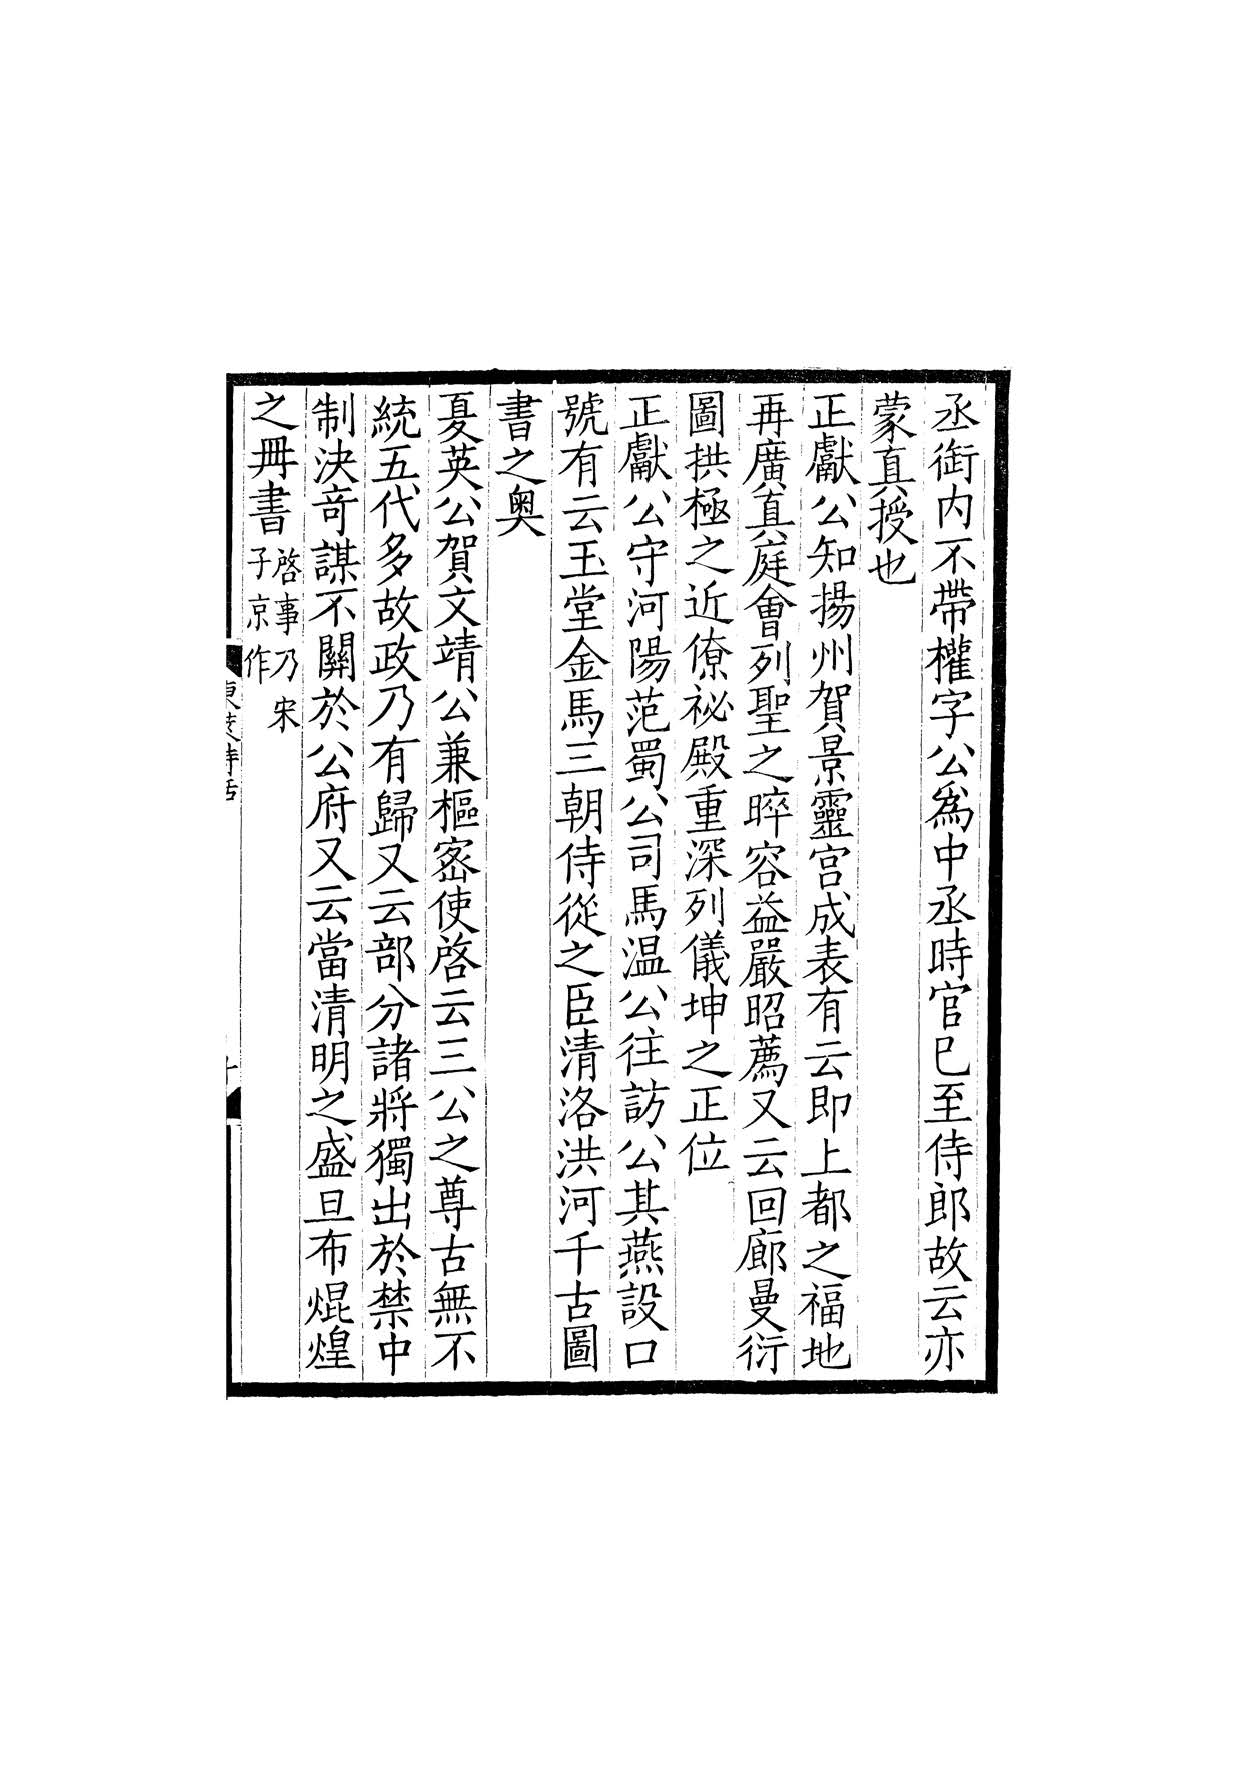 丞銜内不帶權字公爲中丞時官已至侍郎故云亦
蒙真授也
正獻公知揚州賀景靈宫成表有云即上都之福地
再廣真庭會列聖之晬容益嚴昭薦又云回廊曼衍
圖拱極之近僚祕殿重深列儀坤之正位
正獻公守河陽范蜀公司馬温公往訪公其燕設口
號有云玉堂金馬三朝侍從之臣清洛洪河千古圖
書之奥
夏英公賀文靖公兼樞密使啓云三公之尊古無不
統五代多故政乃有歸又云部分諸將獨出於禁中
制決竒謀不關於公府又云當清明之盛旦布焜煌
之冊書啓事乃宋
子京作